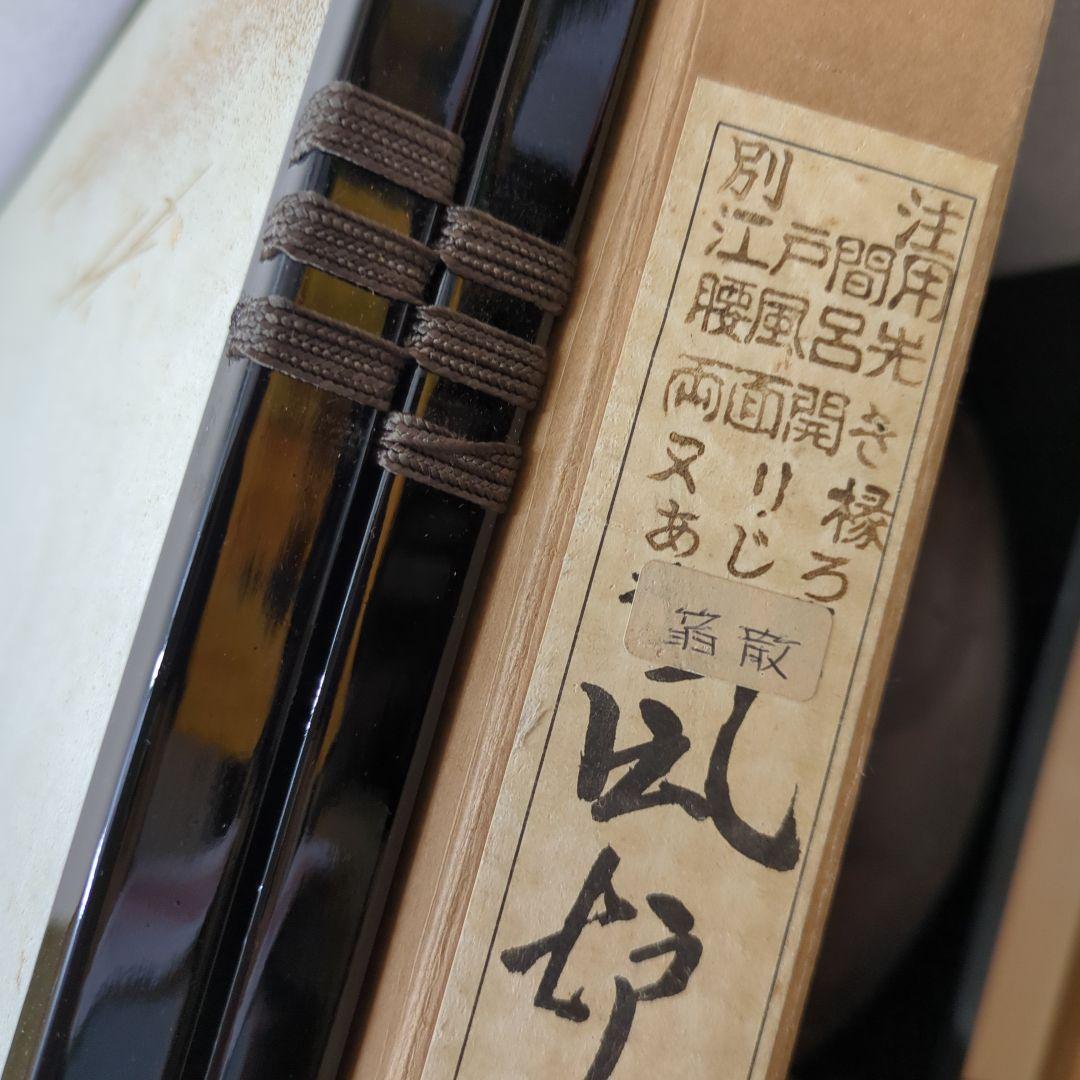 別注
江戸間用
腰風呂先
両面開き
又り縁
あじろ
風炉